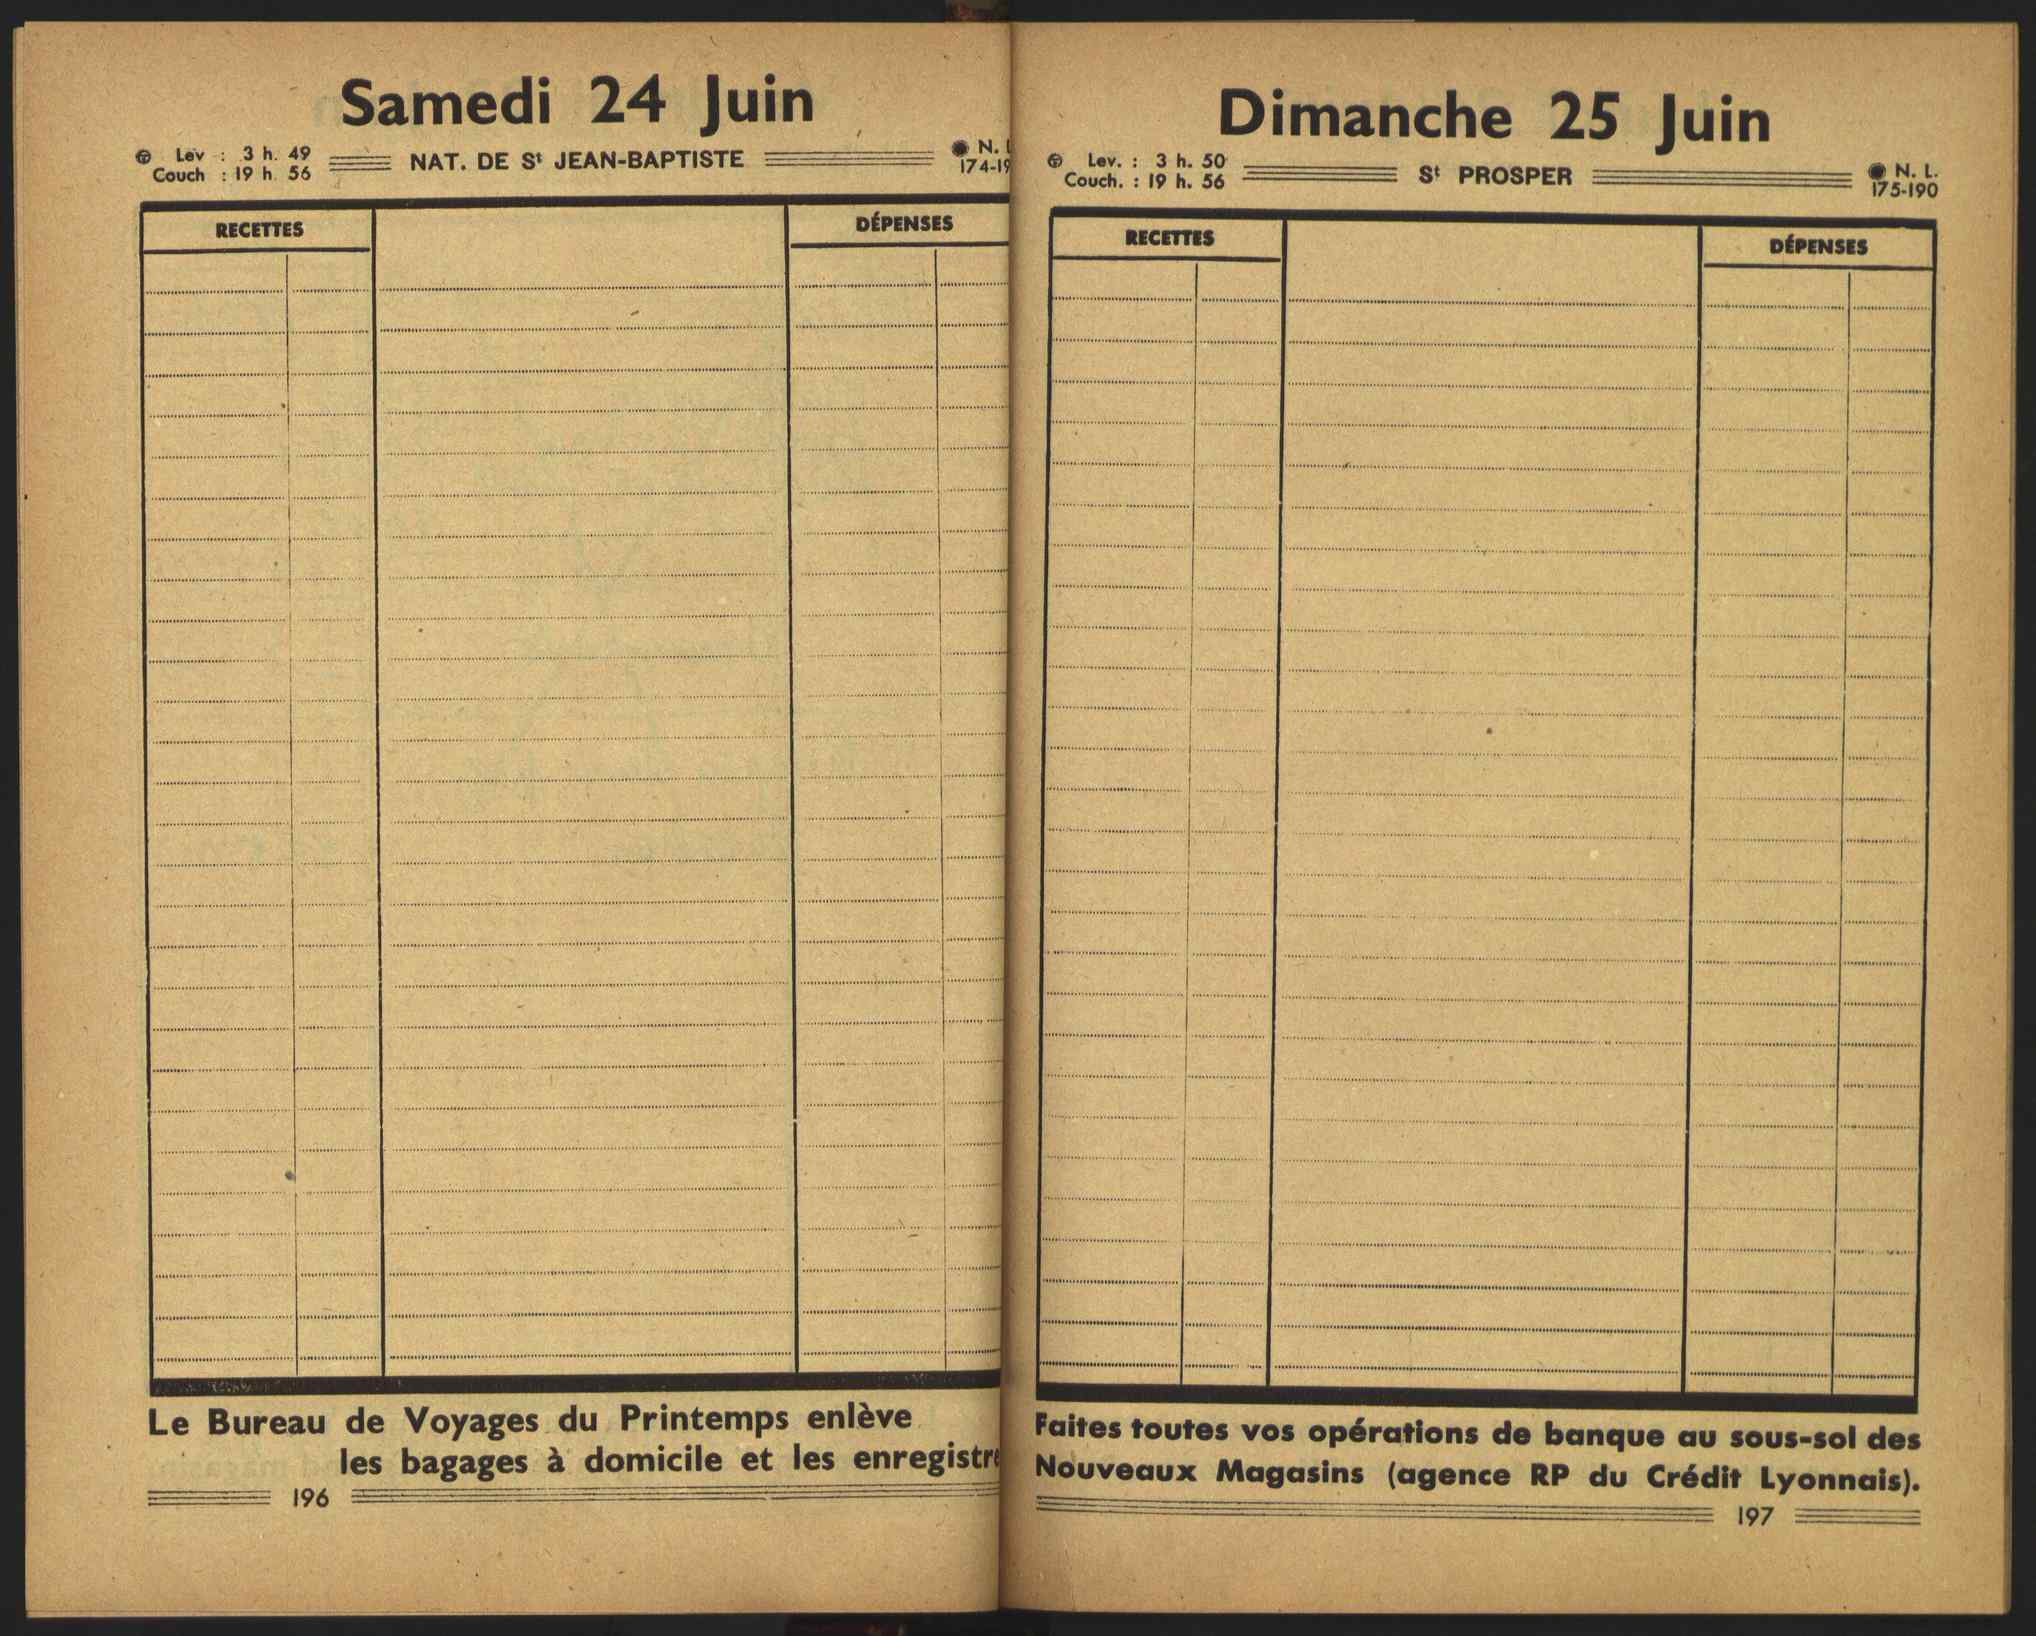 Samedi 24 Juin
Lev : 3 h. 49
Couch : 19 h. 56
NAT. DE St JEAN-BAPTISTE
N.
174-19
RECETTES
DÉPENSES
Le Bureau de Voyages du Printemps enlève
les bagages à domicile et les enregistre
196
Dimanche 25 Juin
Lev. : 3 h. 50
Couch. : 19 h. 56
St PROSPER
N. L.
175-190
RECETTES
DÉPENSES
Faites toutes vos opérations de banque au sous-sol des
Nouveaux Magasins (agence RP du Crédit Lyonnais).
197